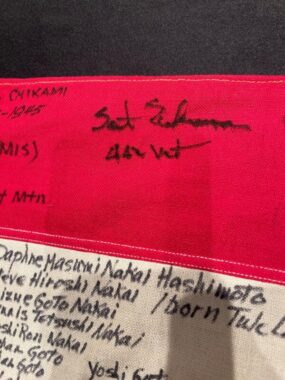 CHIKAMI
-1945
Sat
442 Vet
MIS)
t Mtn
Daphne Masumi Nakai Hashimoto
eve Hiroshi Nakai /born Tule L
izue Goto Nakai
nnis Tetsushi Nakai
shi Ron Nakai
Goto
Goto
Yoshi Goto
Goto